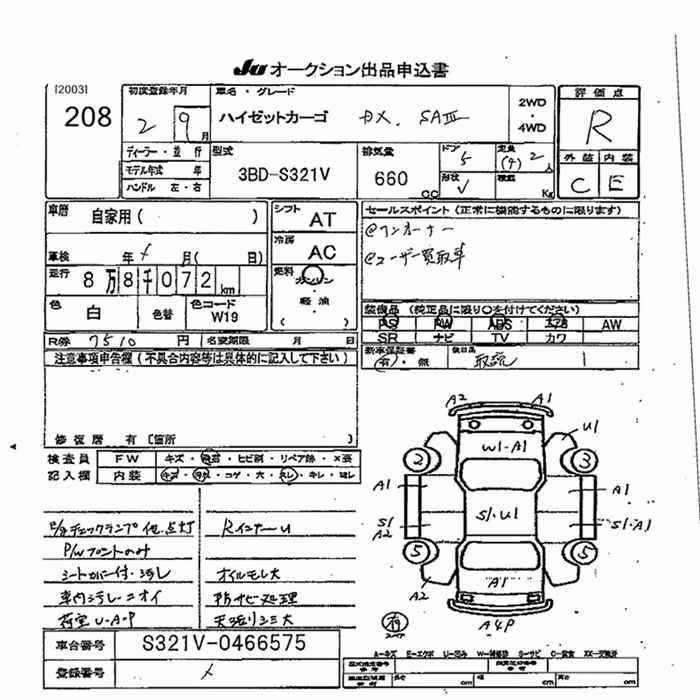 Ju オークション出品申込書
[2003]
208
初度登録年月
2 9月
車名・グレード
ハイゼットカーゴ DX. SAⅢ
2WD
・
4WD
評価点
R
ディーラー・並行
モデル年式 年
ハンドル 左・右
型式
3BD-S321V
排気量
660 cc
ドア 5
形状 V
定員 (4) 2人
積載 Kg
外装 内装
C E
車歴 自家用( )
車検 年 月( 日)
走行 8万8千072km
色 白 色替
色コード W19
シフト AT
冷房 AC
燃料 ガソリン
・
軽油
( )
セールスポイント(正常に機能するものに限ります)
@ワンオーナー
@ユーザー買取車
装備品(純正品に限り○を付けてください)
PS PW ABS エアB AW
SR ナビ TV カワ
新車保証書 (有)・無
後日品 取説
R券 7510円 名変期限 月 日
注意事項申告欄(不具合内容等は具体的に記入して下さい)
修復歴 有(箇所 )
検査員 FW キズ・飛石・ヒビ割・リペア跡・×要
記入欄 内装 キズ・汚れ・コゲ・穴・スレ・キレ・ほし
E/gチェックランプ他点灯
P/Wフロントのみ
シートカバー付・汚レ
車内汚レ・ニオイ
荷室U・A・P
RインナーU
オイルモレ大
防サビ処理
天張りシミ大
車台番号 S321V-0466575
登録番号
A2 A1
U1
W1-A1
2 3
A1 A1
S1 A2
S1・U1
S1・A1
5 5
A2
A1
A4P
有
スペア
A=キズ E=エクボ U=凹み W=補修跡 S=サビ C=腐食 XX=交換済
長さ cm 幅 cm 高さ cm